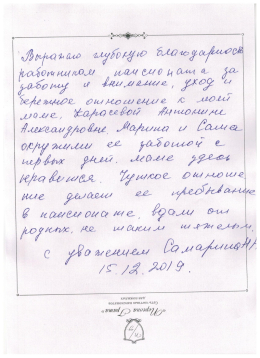 Выражаю глубокую благодарность
работникам пансионата за
заботу и внимание, уход и
бережное отношение к моей
маме, Карасевой Антонине
Александровне. Марина и Саша
окружили ее заботой с
первых дней. маме здесь
нравится. Чуткое отноше
ние делает ее пребывание
в пансионате, вдали от
родных, не таким тяжелым.
с уважением Самарина Н.
15.12.2019.